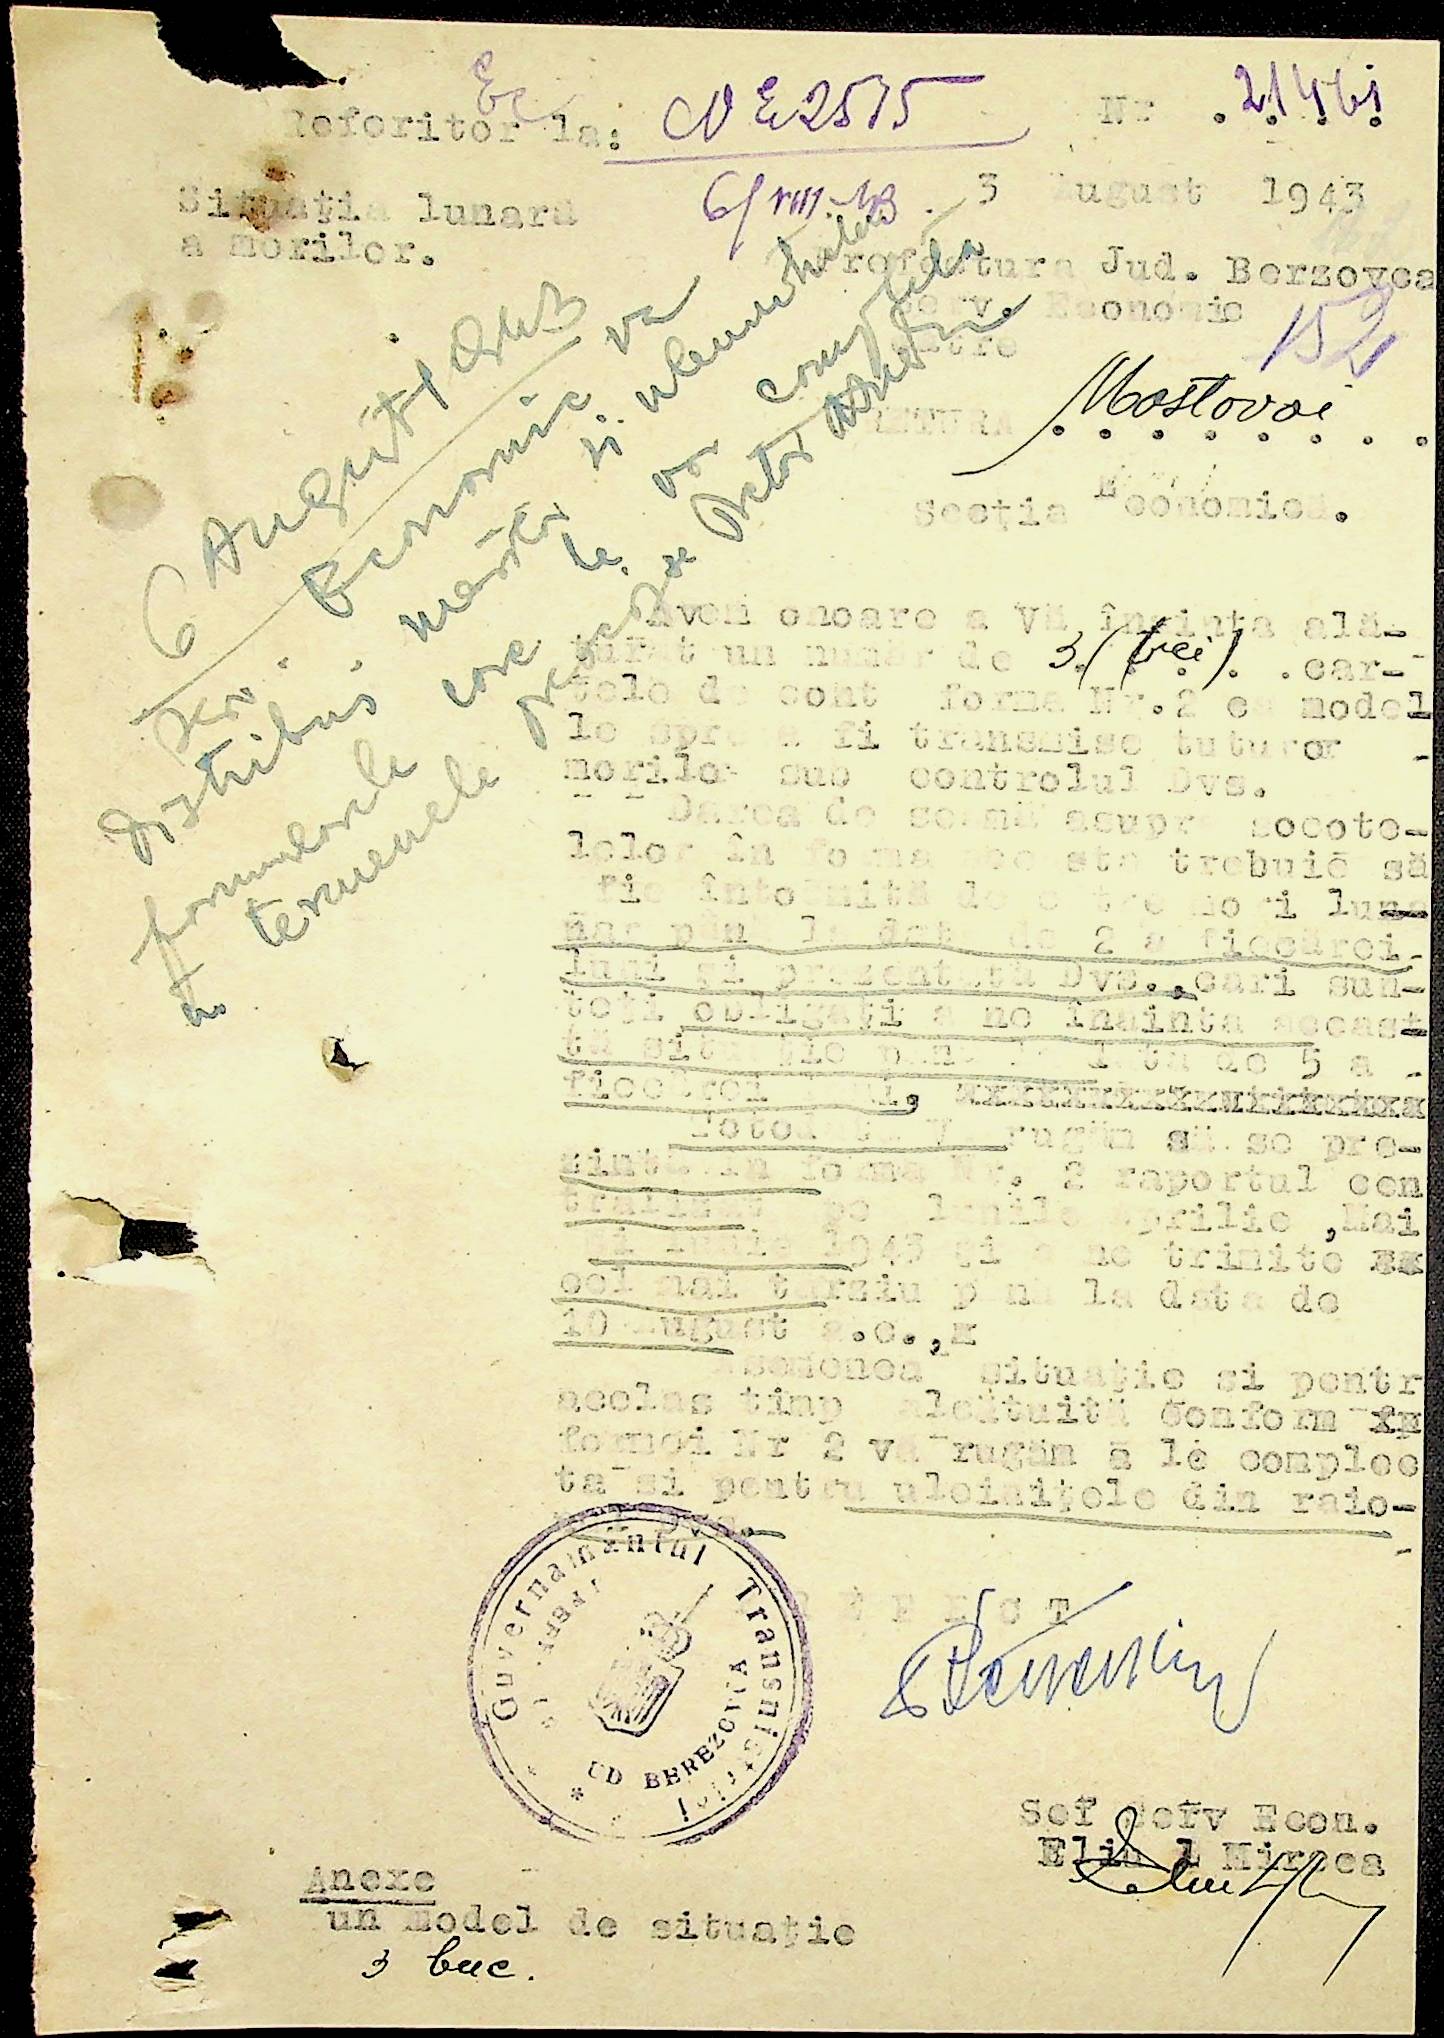 Ec
Referitor la: N E 2575
Nr. 21461
6/VIII 43
3 August 1943
Situația lunară
a morilor.
Prefectura Jud. Berzovca
Serv. Economic
către
152
Mostovoi
Secția Economică.
6 August 1943
Serv. Economic va
distribui morilor și uleinițelor
formularele care le vor completa
la termenele
Avem onoare a Vă înainta ală-
turat un număr de 3 (trei) car-
tele de cont forma Nr.2 ca model
le spre a fi transmise tuturor
morilor sub controlul Dvs.
Darea de seamă asupra socote-
lelor în forma aceasta trebuie să
fie întocmită de către mori luna
nar până la data de 2 a fiecărei
luni și prezentată Dvs., cari sun-
teți obligați a ne înainta aceas-
tă situație până la data de 5 a
fiecărei luni,
Totodată Vă rugăm să se pre-
zinte în forma Nr. 2 raportul cen
tralizat pe lunile Aprilie ,Mai
și Iunie 1943 și a ne trimite
cel mai târziu până la data de
10 August a.c.,
Asemenea situație si pentr
acelas timp alcătuită conform
formei Nr 2 vă rugăm a le complec
ta si pentru uleinițele din raio-
nul Dvs.
Guvernamântul Transnistriei
PREF.
JUD BEREZOVCA
PREFECT
Sef Serv Econ.
Mircea
Anexe
un model de situație
3 buc.